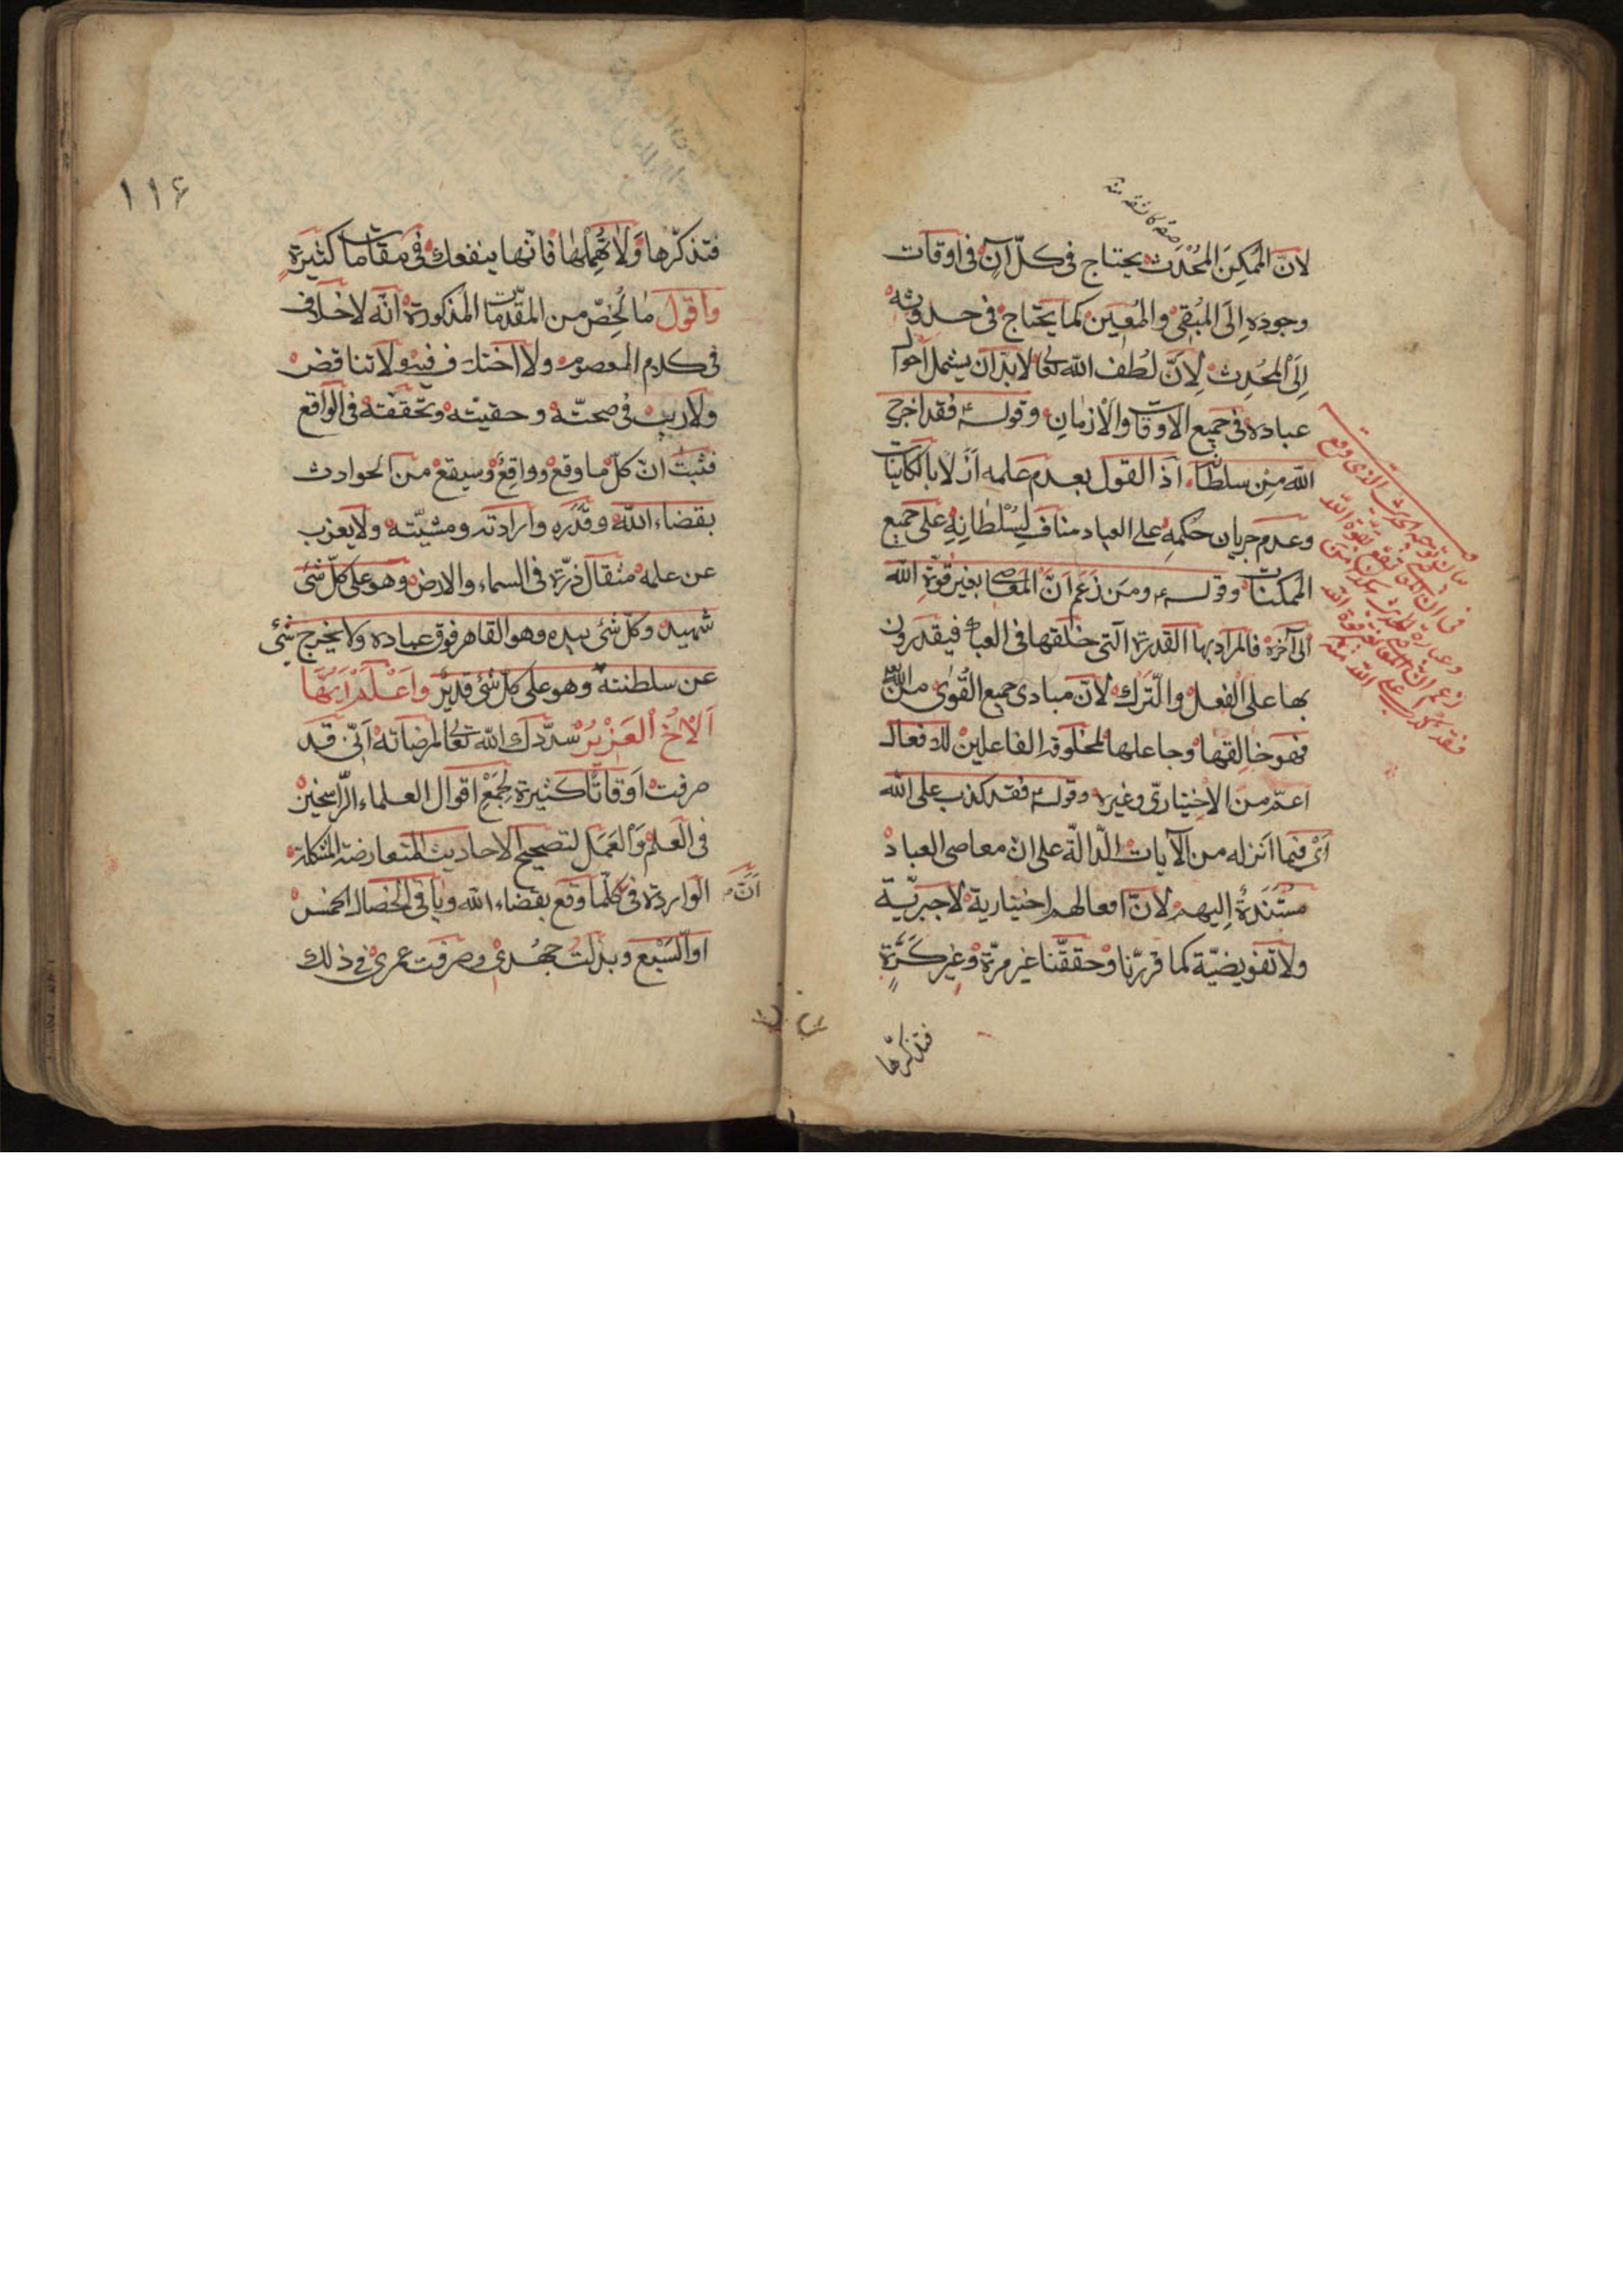 لانّ الممكن المحدث يحتاج فى كلّ آن فى اوقات
وجوده الى المبقى والمعين كما يحتاج فى حدوثه
الى المحدث لانّ لطف الله تعالى لابدّ ان يشمل احوال
عباده فى جميع الاوقات والازمان وقوله ع فقد اخرج
الله من سلطانه اذ القول بعدم علمه ازلا بالكاينات
وعدم جريان حكمه على العباد مناف لسلطانه على جميع
الممكنات وقوله ع ومن زعم انّ المعاصى بغير قوّة الله
الى آخره فالمراد بها القدرة التى خلقها فى العباد فيقدرون
بها على الفعل والترك لانّ مبادى جميع القوى من الله
فهو خالقها وجاعلها لمخلوقه الفاعلين للافعال
اعمّ من الاختيارىّ وغيره وقوله ع فقد كذب على الله
اى فيما انزله من الآيات الدّالّة على انّ معاصى العباد
مستندة اليهم لانّ افعالهم اختيارية لا جبريّة
ولا تفويضيّة كما قررّنا وحققّنا غير مرّة وغير كرّة
فتذكرّها
١١٤
فتذكرّها ولا تهملها فانّها ينفعك فى مقامات كثيرة
واقول ما لخّص من المقدّمات المذكورة انّه لا خلاف
فى كلام المعصوم ولا اختلاف فيه ولا تناقض
ولا ريب فى صحتّه وحقيّته وتحقّقه فى الواقع
فثبت انّ كلّ ما وقع وواقع وسيقع من الحوادث
بقضاء الله وقدره وارادته ومشيّته ولا يعزب
عن علمه مثقال ذرّة فى السماء والارض وهو على كلّ شئ
شهيد وكلّ شئ بيده وهو القاهر فوق عباده ولا يخرج شئ
عن سلطنته وهو على كلّ شئ قدير واعلم ايّها
الاخ العزيز سدّدك الله تعالى لمرضاته انّى قد
صرفت اوقاتا كثيرة لجمع اقوال العلماء الرّاسخين
فى العلم والعمل لتصحيح الاحاديث المتعارضة المشكلة
الواردة فى انّ كلّما وقع بقضاء الله وباقى الخصال الخمس
او السّبع وبذلت جهدى وصرفت عمرى فى ذلك